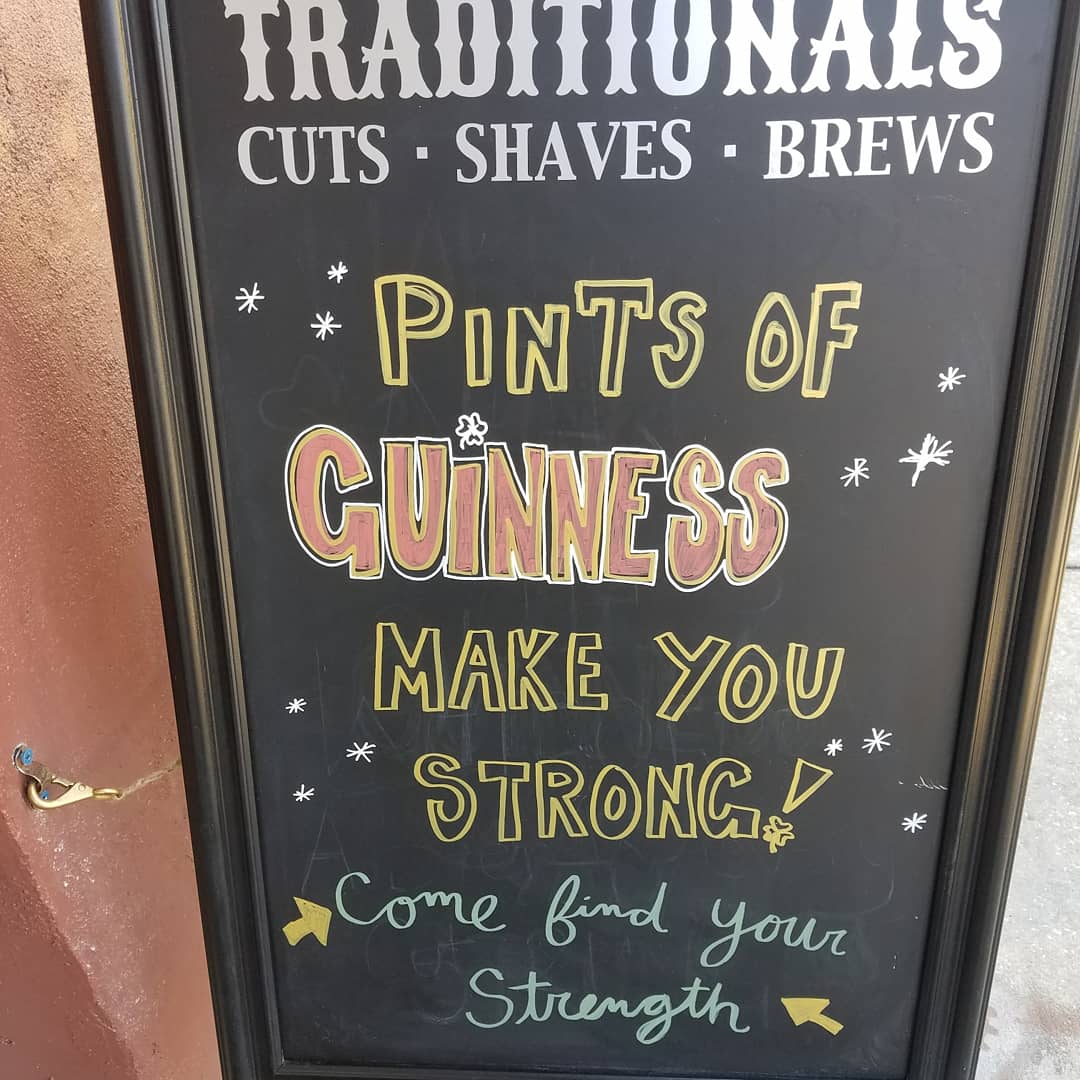 TRADITIONALS
CUTS · SHAVES · BREWS
PINTS OF
GUiNNESS
MAKE YOU
STRONG!
Come find your
Strength